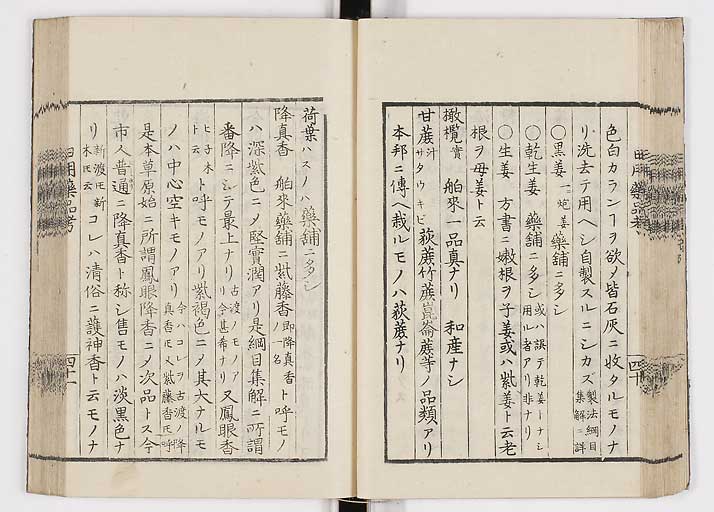 色白カランヿヲ欲メ皆石灰ニ收タルモノナ
リ洗去テ用ヘシ自製スルニシカズ製法綱目集解ニ詳
〇黒姜一炮姜藥舗ニ多シ
〇乾生姜 藥舗ニ多シ或ハ誤テ乾姜トナシ用ル者アリ非ナリ
〇生姜 方書ニ嫩根ヲ子姜或ハ紫姜ト云老
根ヲ母姜ト云
橄欖實 舶來一品真ナリ 和産ナシ
甘蔗汁サタウキビ 荻蔗竹蔗崑崙蔗等ノ品類アリ
本邦ニ傳ヘ栽ルモノハ荻蔗ナリ
四十
荷葉ハスノハ藥舗ニ多シ
降真香 舶來藥舗ニ紫藤香即降真香ノ一名ト呼モノ
ハ深紫色ニメ堅實潤アリ是綱目集解ニ所謂
番降ニシテ最上ナリ古渡ノモノアリ今甚希ナリ又鳳眼香
ヒ子木ト云ト呼モノアリ紫褐色ニメ其大ナルモ
ノハ中心空キモノアリ今ハコレヲ古渡ノ降真香トモ紫藤香トモ呼
是本草原始ニ所謂鳳眼降香ニメ次品トス今
市人普通ニ降真香ト称シ售モノハ淡黒色ナ
リ新渡トモ新木トモ云コレハ清俗ニ護神香ト云モノナ
日用藥品考
四十一